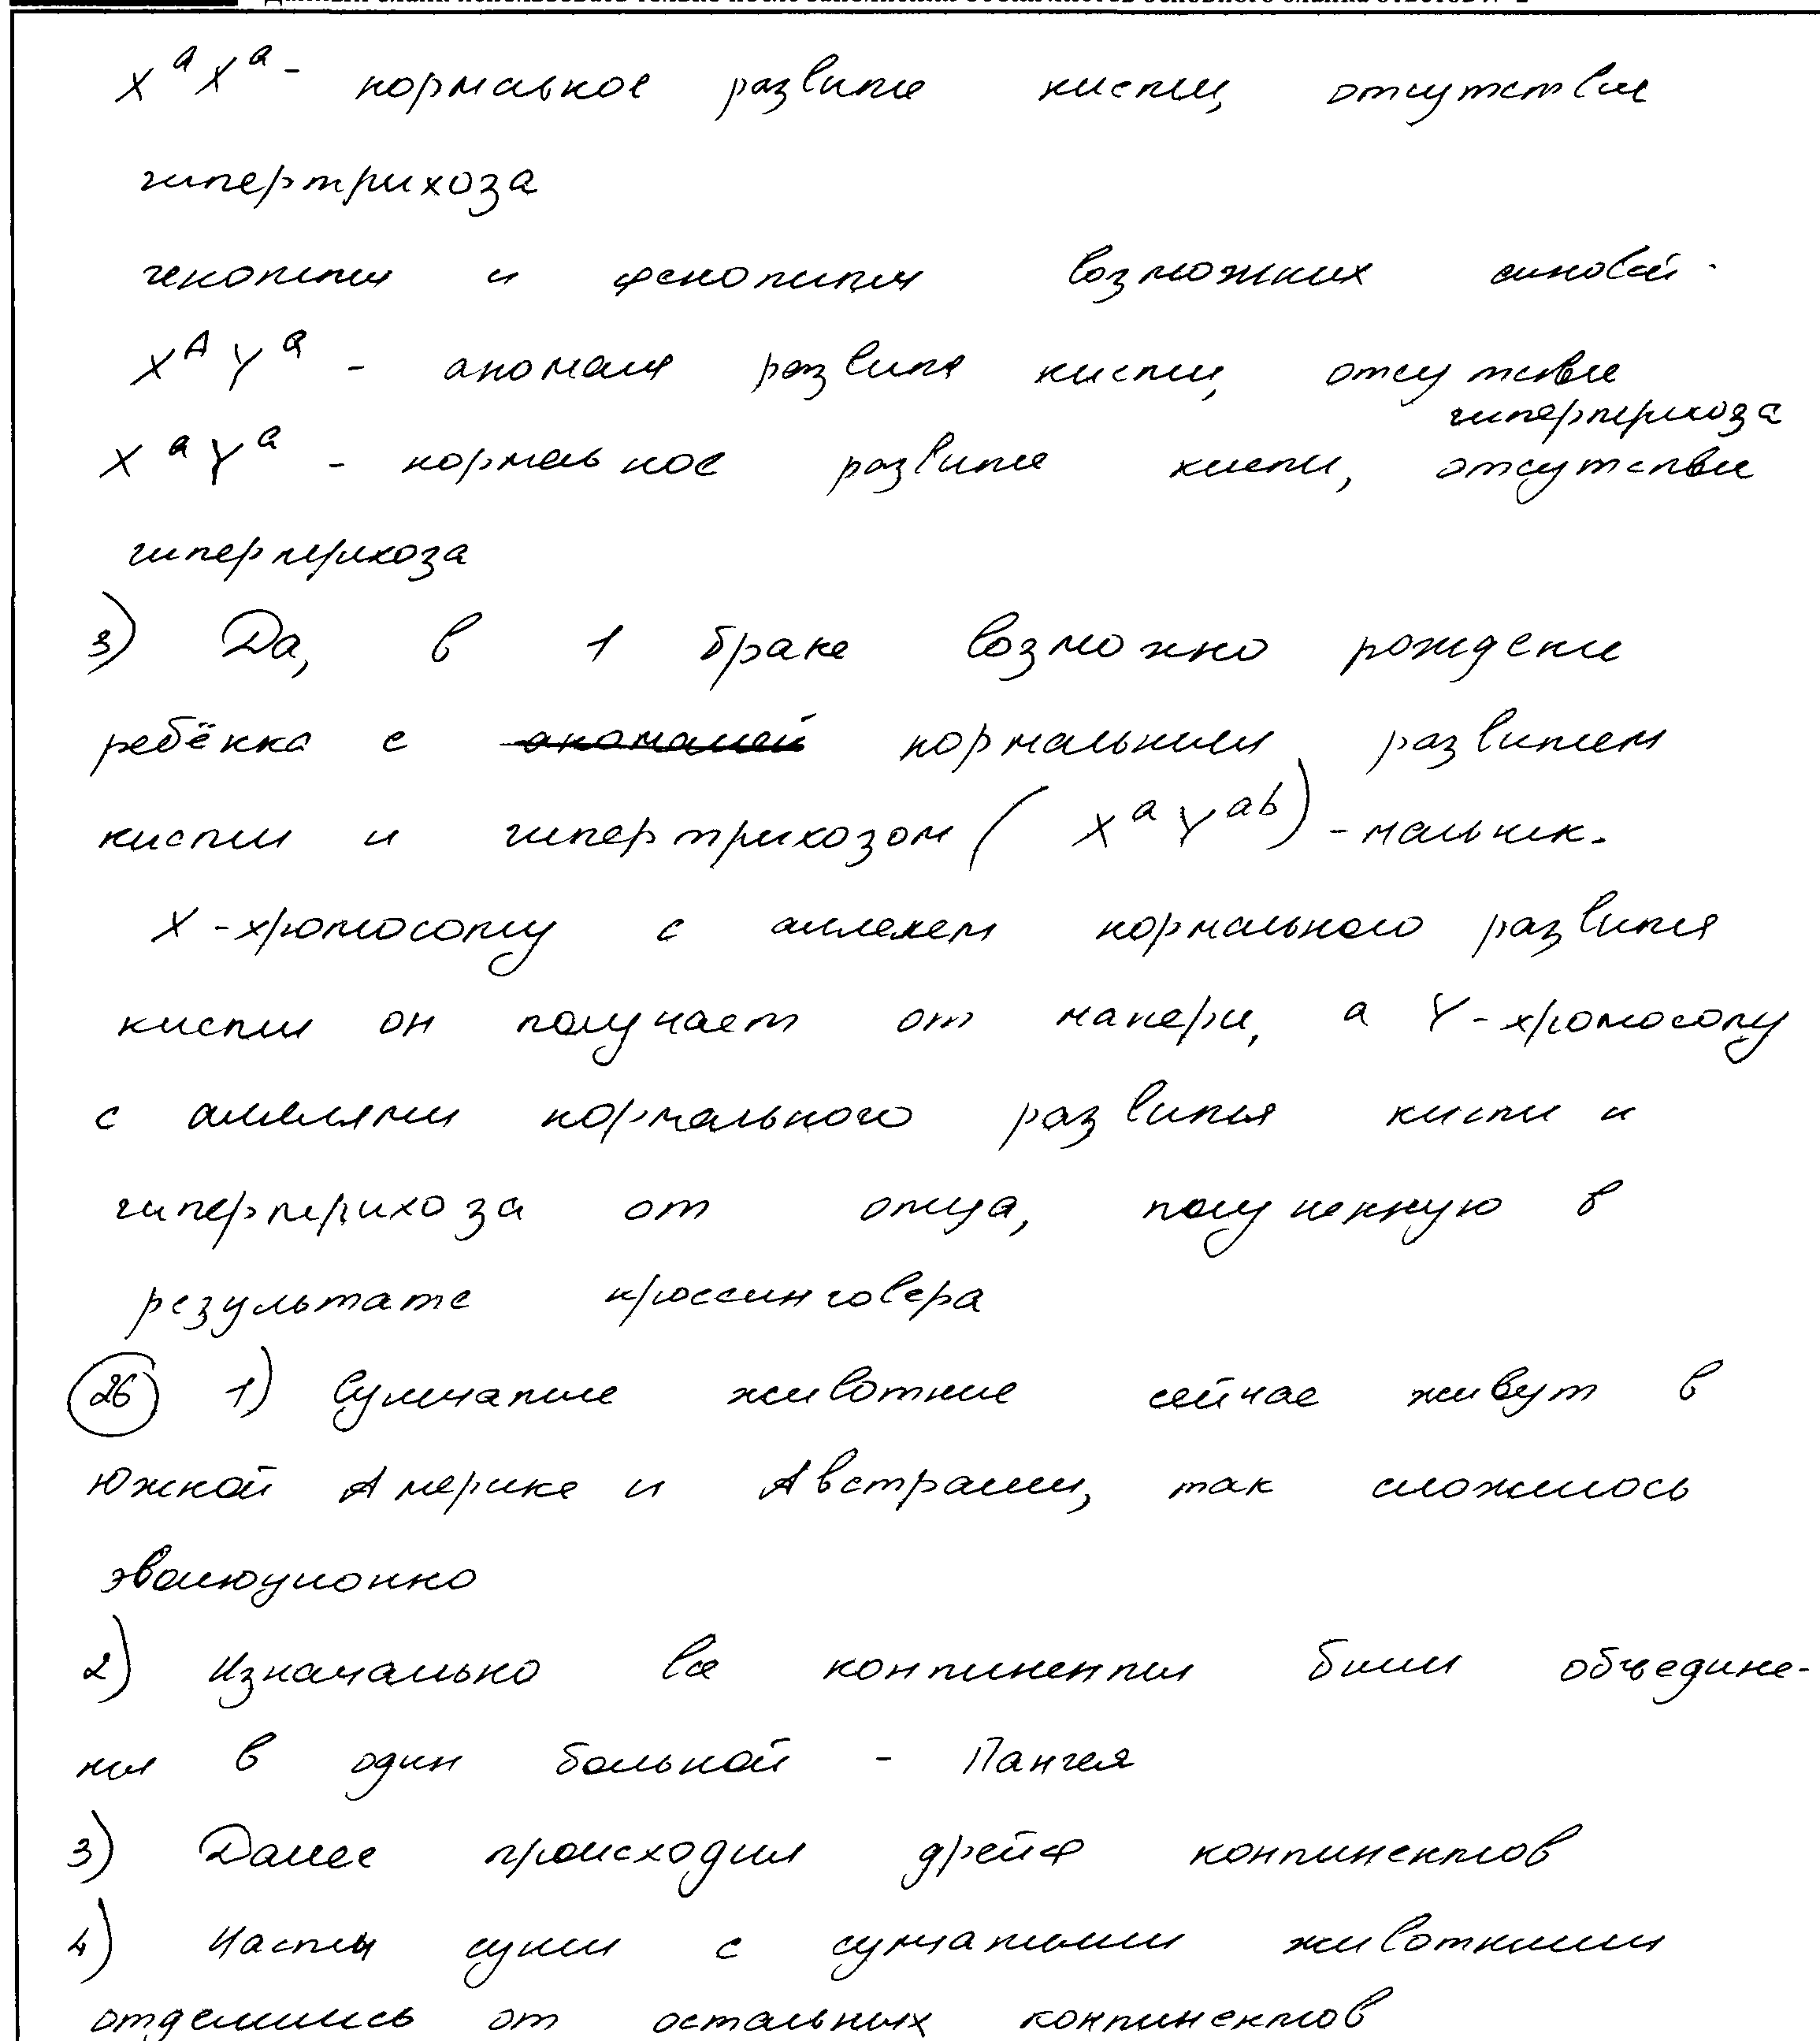 X^a X^a - нормальное развитие кисти, отсутствие
гипертрихоза
генотипы и фенотипы возможных сыновей -
X^A Y^a - аномалия развития кисти, отсутствие
гипертрихоза
X^a Y^a - нормальное развитие кисти, отсутствие
гипертрихоза
3) Да, в 1 браке возможно рождение
ребёнка с аномалией нормальным развитием
кисти и гипертрихозом ( X^a Y^ab ) - мальчик.
X-хромосому с аллелем нормального развития
кисти он получает от матери, а Y-хромосому
с аллелями нормального развития кисти и
гипертрихоза от отца, полученную в
результате кроссинговера
26 1) Сумчатые животные сейчас живут в
Южной Америке и Австралии, так сложилось
эволюционно
2) Изначально все континенты были объедине-
ны в один большой - Пангея
3) Далее происходил дрейф континентов
4) Части суши с сумчатыми животными
отделились от остальных континентов